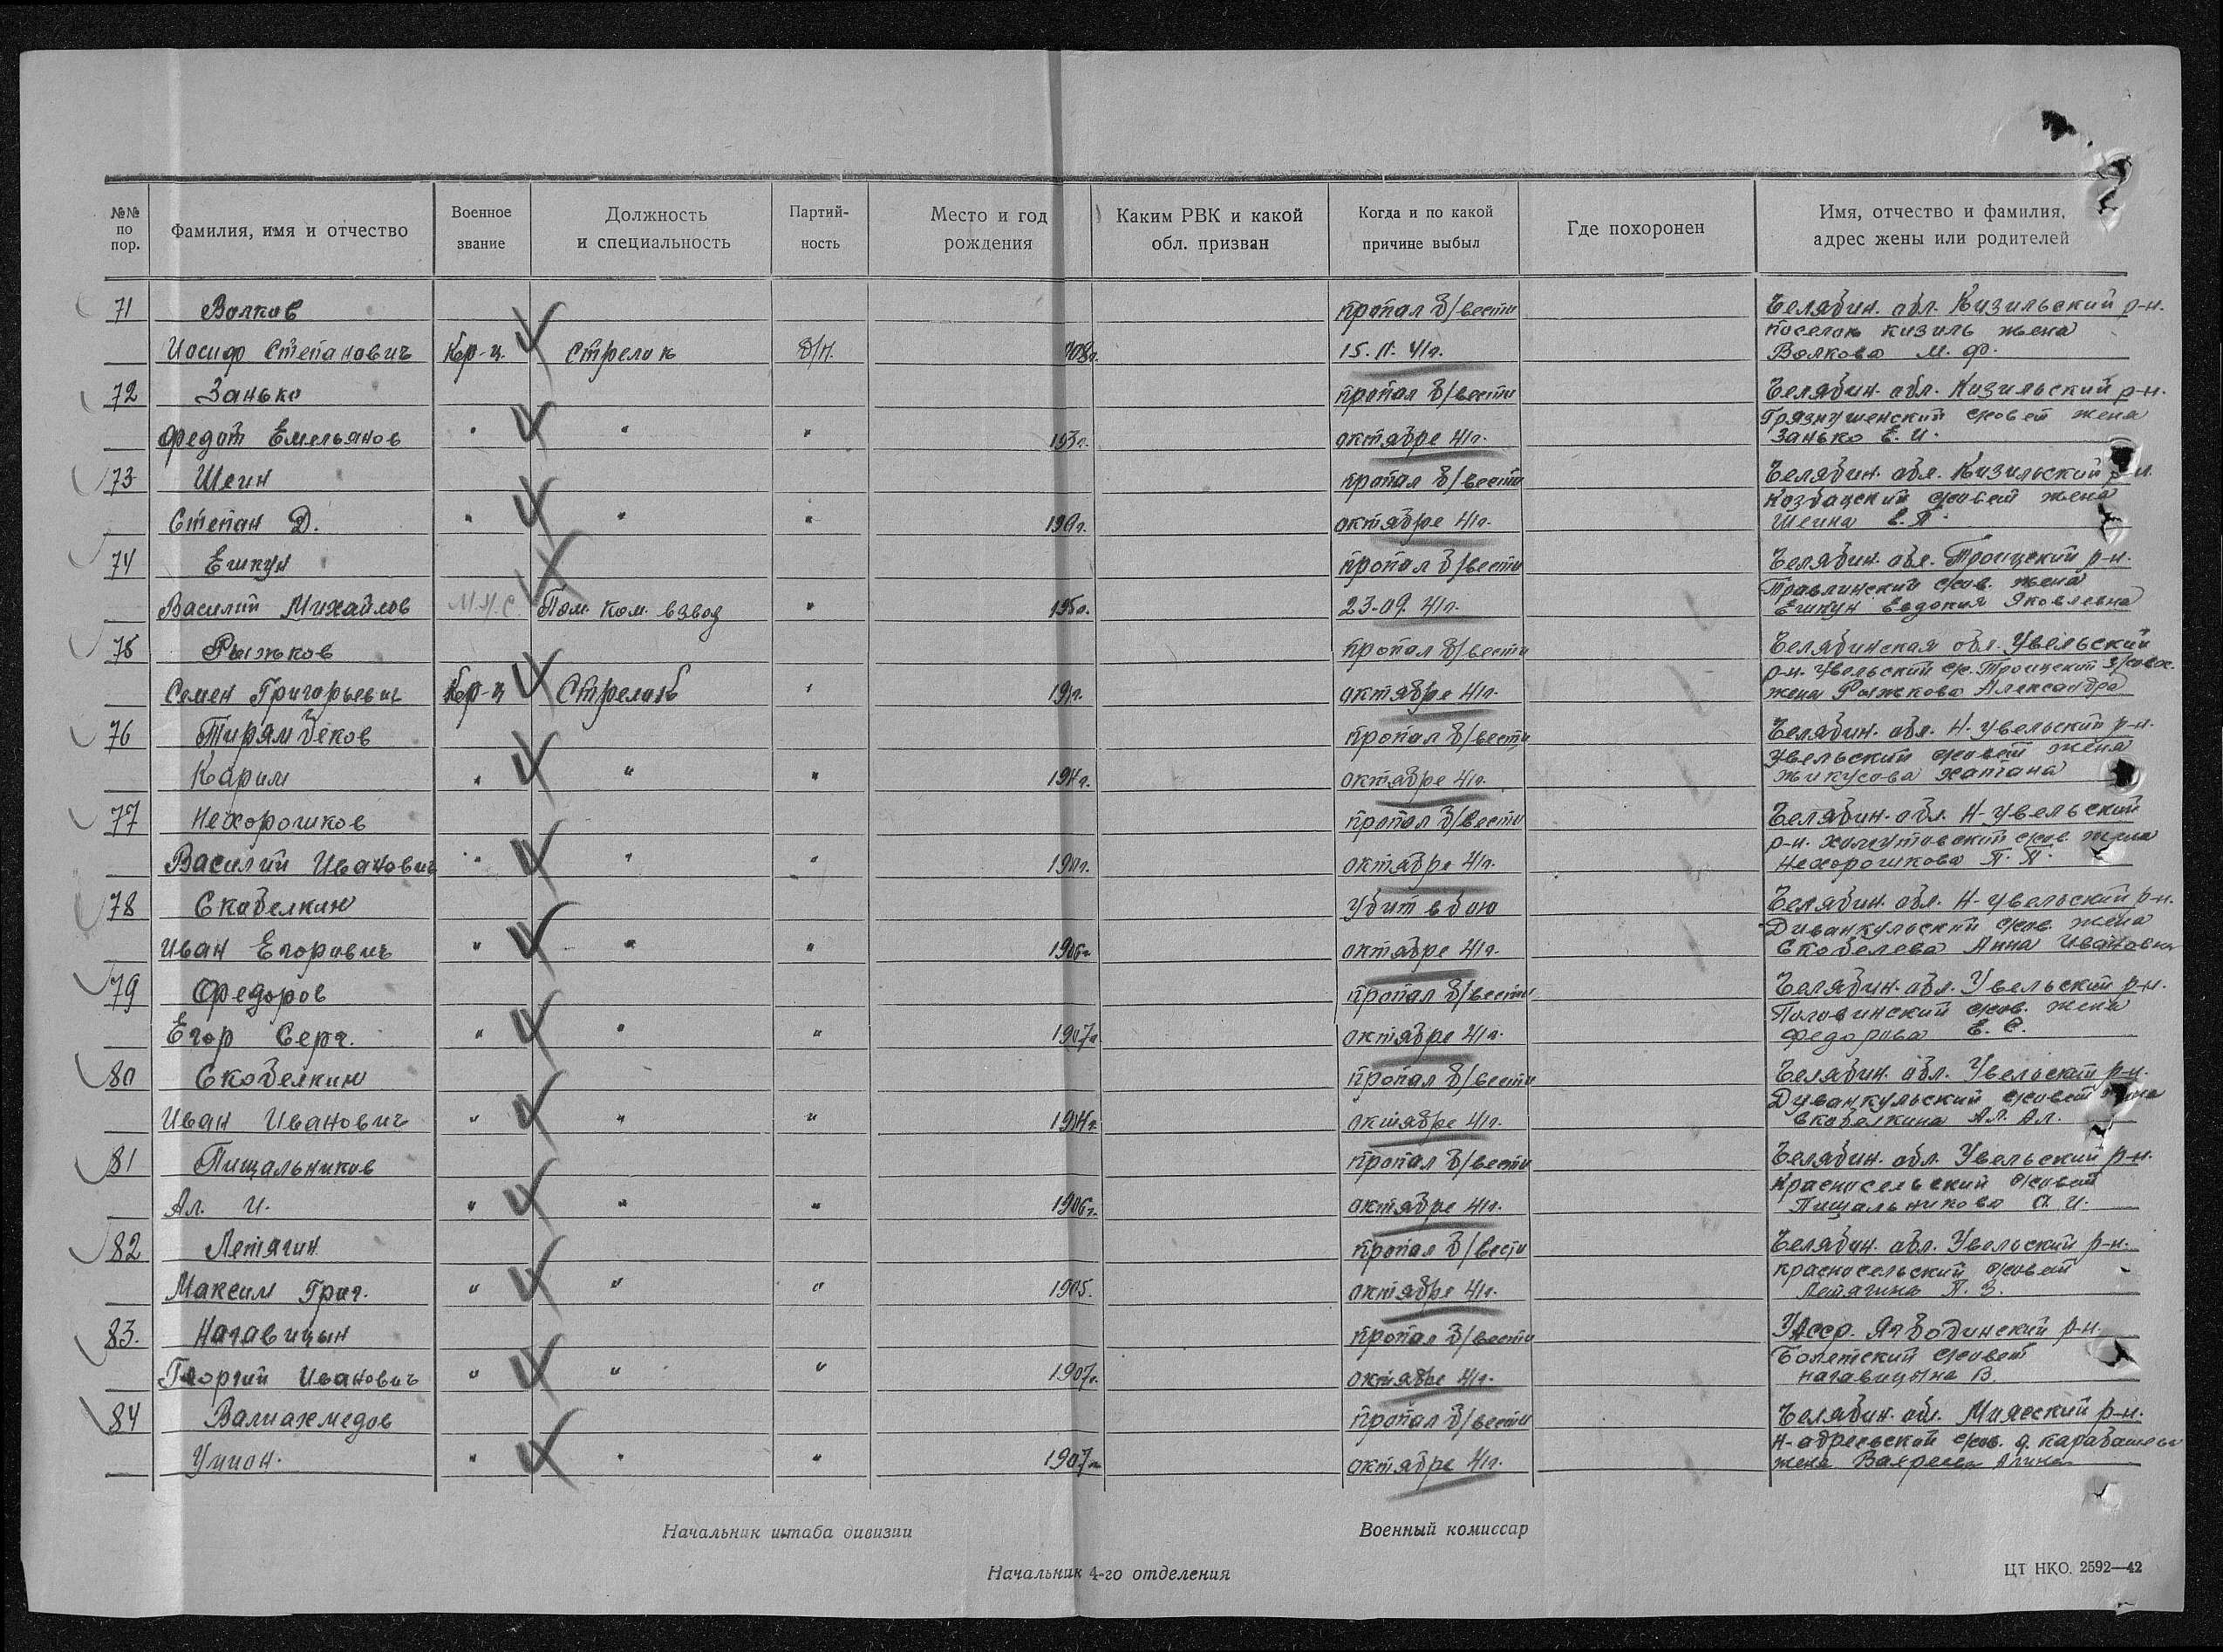 №№ по пор. Фамилия, имя и отчество Военное звание Должность и специальность Партий-ность Место и год рождения Каким РВК и какой обл. призван Когда и по какой причине выбыл Где похоронен Имя, отчество и фамилия, адрес жены или родителей
71 Волков пропал б/вести Челябин. обл. Кизильский р-н.
поселок кизиль жена
Иосиф Степанович Кр-ц. Стрелок б/п. 15. 11. 41г. Волкова М. Ф.
72 Занько пропал б/вести Челябин. обл. Кизильский р-н.
Грязнушенский с/совет жена
Федот Емельянов " " " октябре 41г. Занько Е. И.
73 Шеин пропал б/вести Челябин. обл. Кизильский р-н.
с/совет жена
Степан Д. " " " октябре 41г. Шеина Е. П.
74 Ешкун пропал б/вести Челябин. обл. Троицкий р-н.
Травлинский с/сов. жена
Василий Михайлов М.Л.С. Пом. ком. взвод " 23-09. 41г. Ешкун Евдокия Яковлевна
75 Рыжков пропал б/вести Челябинская обл. Увельский
р-н. Увельский с/с. Троицкий
Семен Григорьевич Кр-ц Стрелок " октябре 41г. жена Рыжкова Александра
76 Тирямбеков пропал б/вести Челябин. обл. Н-увельский р-н.
Увельский с/совет жена
Карим " " " октябре 41г. жикусова
77 Нехорошков пропал б/вести Челябин. обл. Н-увельский
р-н. Хомутовский с/сов. жена
Василий Иванович " " " октябре 41г. Нехорошкова П. П.
78 Скобелкин Убит в бою Челябин. обл. Н-увельский р-н.
Дуванкульский с/сов. жена
Иван Егорович " " " 1906г октябре 41г. Скобелева Анна Ивановна
79 Федоров пропал б/вести Челябин. обл. Увельский р-н.
Половинский с/сов. жена
Егор Серг. " " " 1907г октябре 41г. Федорова Е. С.
80 Скобелкин пропал б/вести Челябин. обл. Увельский р-н.
Дуванкульский с/совет жена
Иван Иванович " " " октябре 41г. Скобелкина Ал. Ал.
81 Пищальников пропал б/вести Челябин. обл. Увельский р-н.
Красносельский с/совет
Ал. И. " " " 1906г. октябре 41г. Пищальникова А. И.
82 Летягин пропал б/вести Челябин. обл. Увельский р-н.
красносельский с/совет
Максим Григ. " " " 1905. октябре 41г. Летягина П. З.
83. Нагавицын пропал б/вести УАССР. р-н.
с/совет
Георгий Иванович " " " 1907г. октябре 41г. нагавицына В.
84 Валиахмедов пропал б/вести Челябин. обл. Миасский р-н.
с/сов.
" " " 1907г октябре 41г. жена
Начальник штаба дивизии Военный комиссар
Начальник 4-го отделения ЦТ НКО. 2592—42